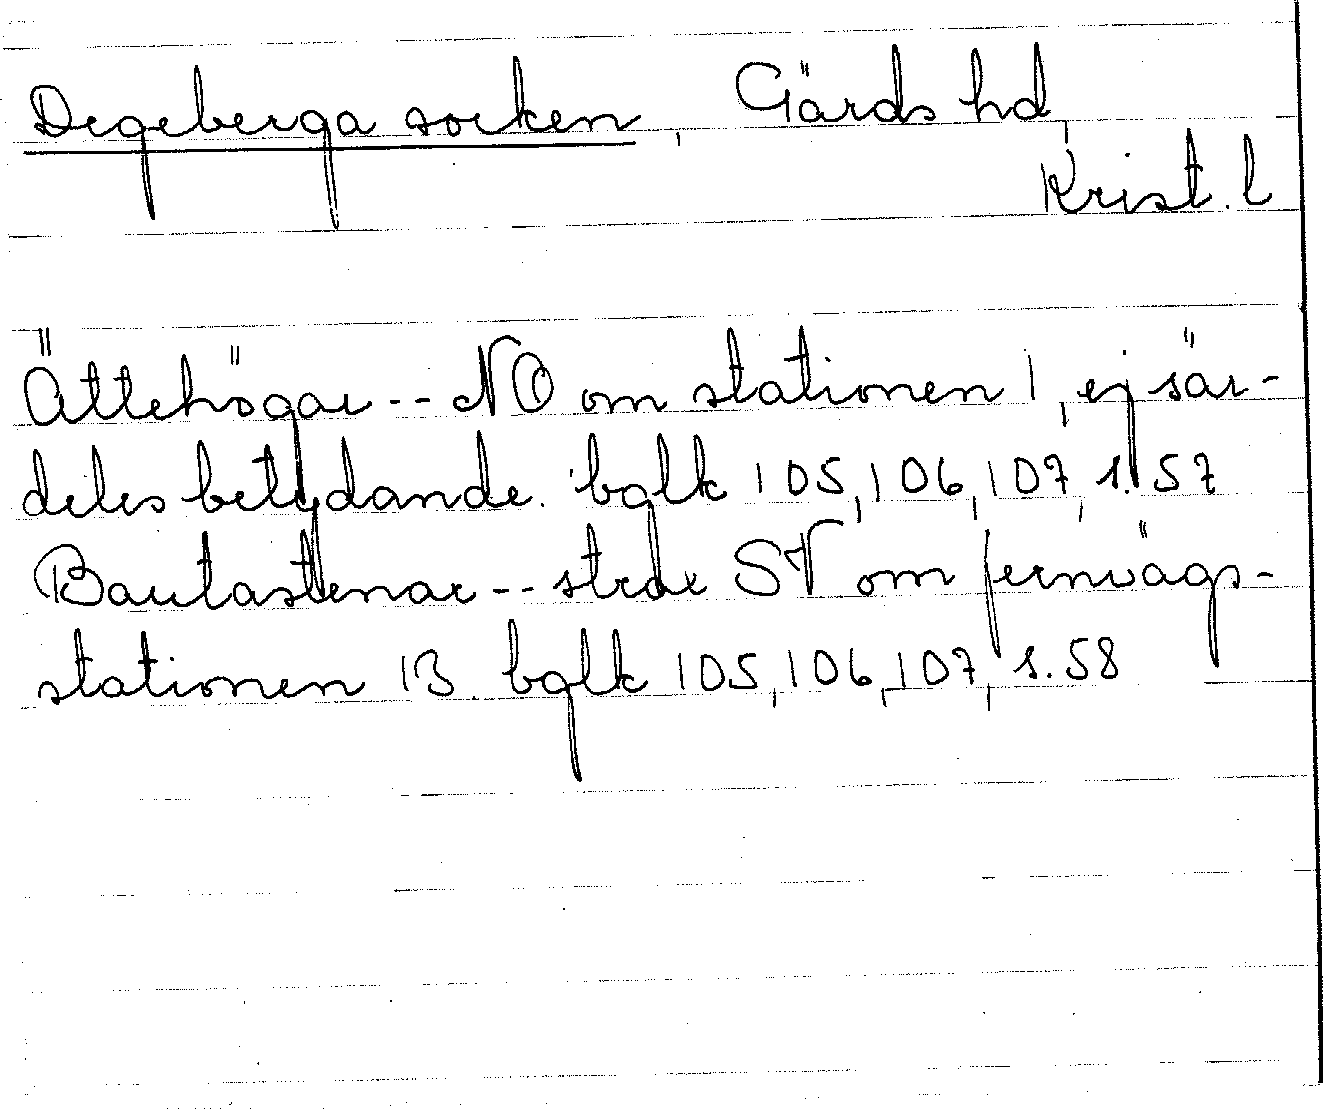 Degeberga socken, Gärds hd,
Krist. l
Ättehögar -- NO om stationen 1, ej sär-
deles betydande. bglk 105, 106, 107, s. 57
Bautastenar -- strax SV om jernvägs-
stationen 13. bglk 105, 106, 107, s. 58